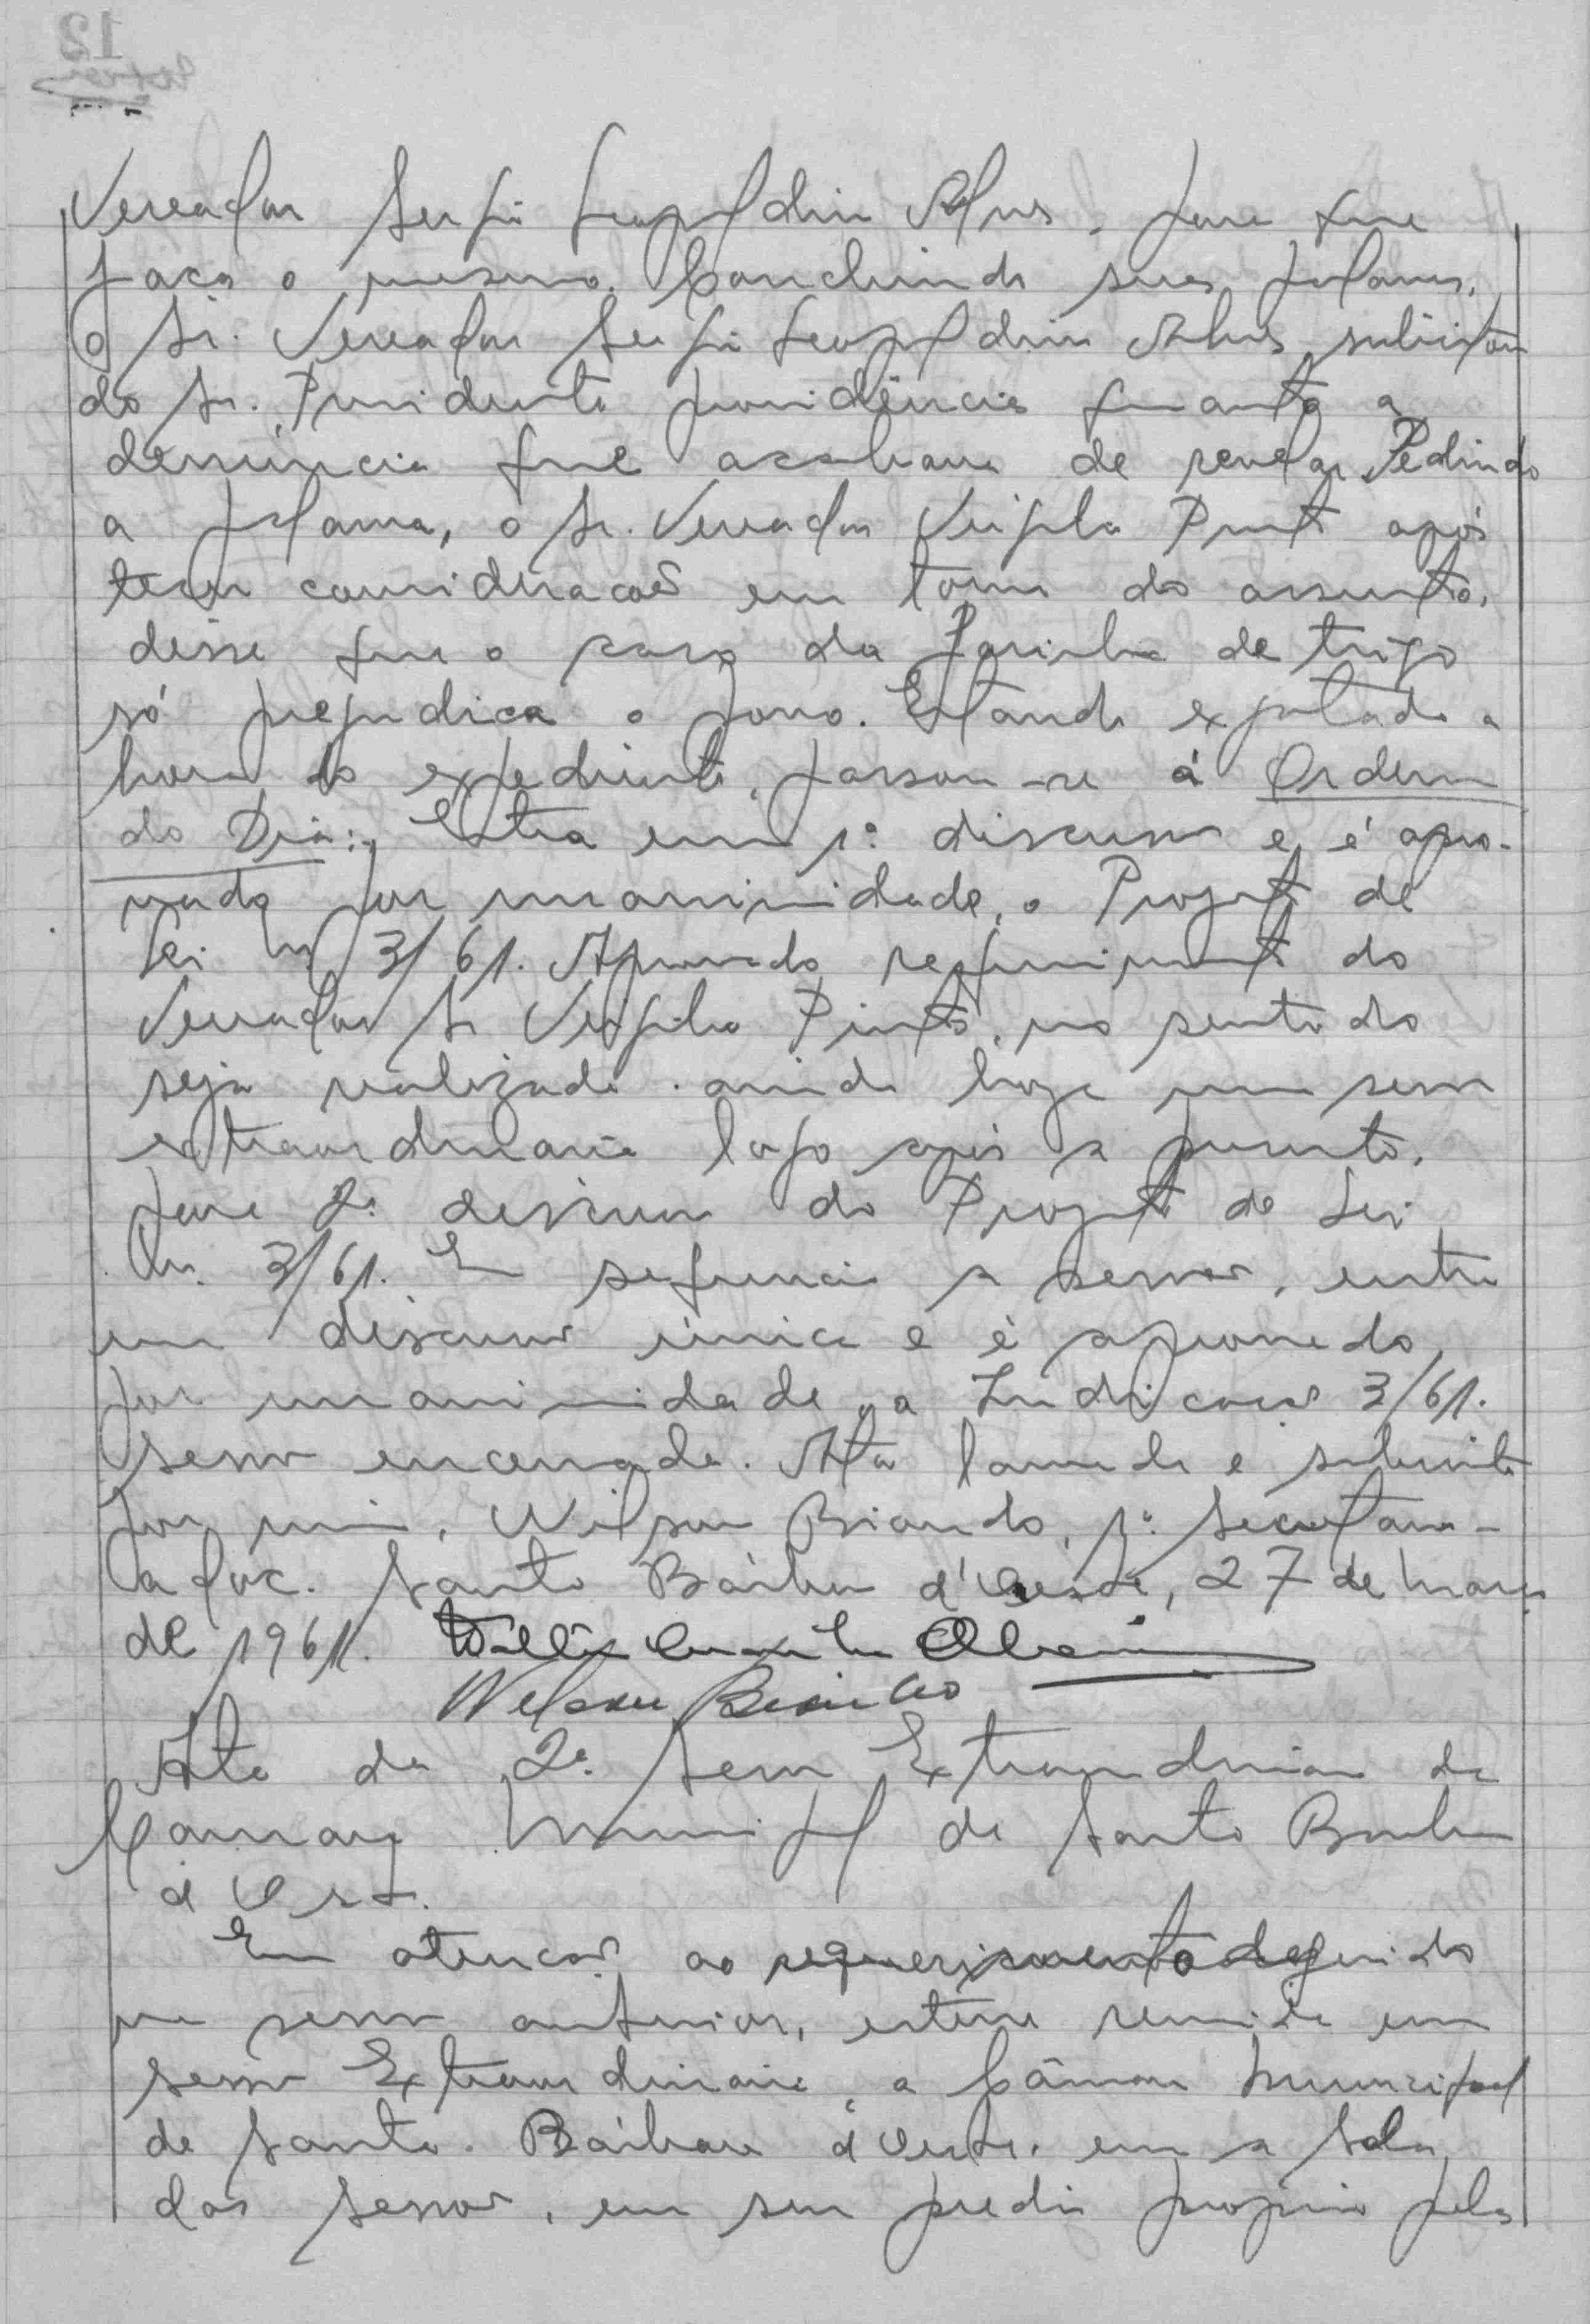 Vereador Sergio Leopoldino Alves, para que
faça o mesmo. Concluindo suas palavras,
o Sr. Vereador Sergio Leopoldino Alves solicitou
do Sr. Presidente providências quanto a
denúncia que acabava de revelar. Pedindo
a palavra, o Sr. Vereador Virgilio Pinto após
tecer considerações em torno do assunto,
disse que o caso da farinha de trigo
só prejudica o povo. Estando esgotada a
hora do expediente, passou-se à Ordem
do Dia: Entra em 1ª discussão e é apro-
vado por unanimidade, o Projeto de
Lei nº 3/61. Aprovado requerimento do
Vereador Sr Virgilio Pinto, no sentido
seja realizada ainda hoje uma sessão
extraordinaria logo após a presente,
para 2ª discussão do Projeto de Lei
Nr. 3/61. Em sequencia a sessão, entra
em discussão única e é aprovado
por unanimidade, a Indicação 3/61.
Sessão encerrada. Ata lavrada e subscrita
por mim, Wilson Biando, 1º Secretario-
adoc. Santa Bárbara d'Oeste, 27 de março
de 1961.
Ata da 2ª Sessão Extraordinária da
Camara Municipal de Santa Barbara
d'Oeste.
Em atenção ao requerimento deferido
na sessão anterior, esteve reunida em
sessão Extraordinaria, a Câmara Municipal
de Santa Bárbara d'Oeste, em a sala
das sessões, em seu predio proprio pelas
12